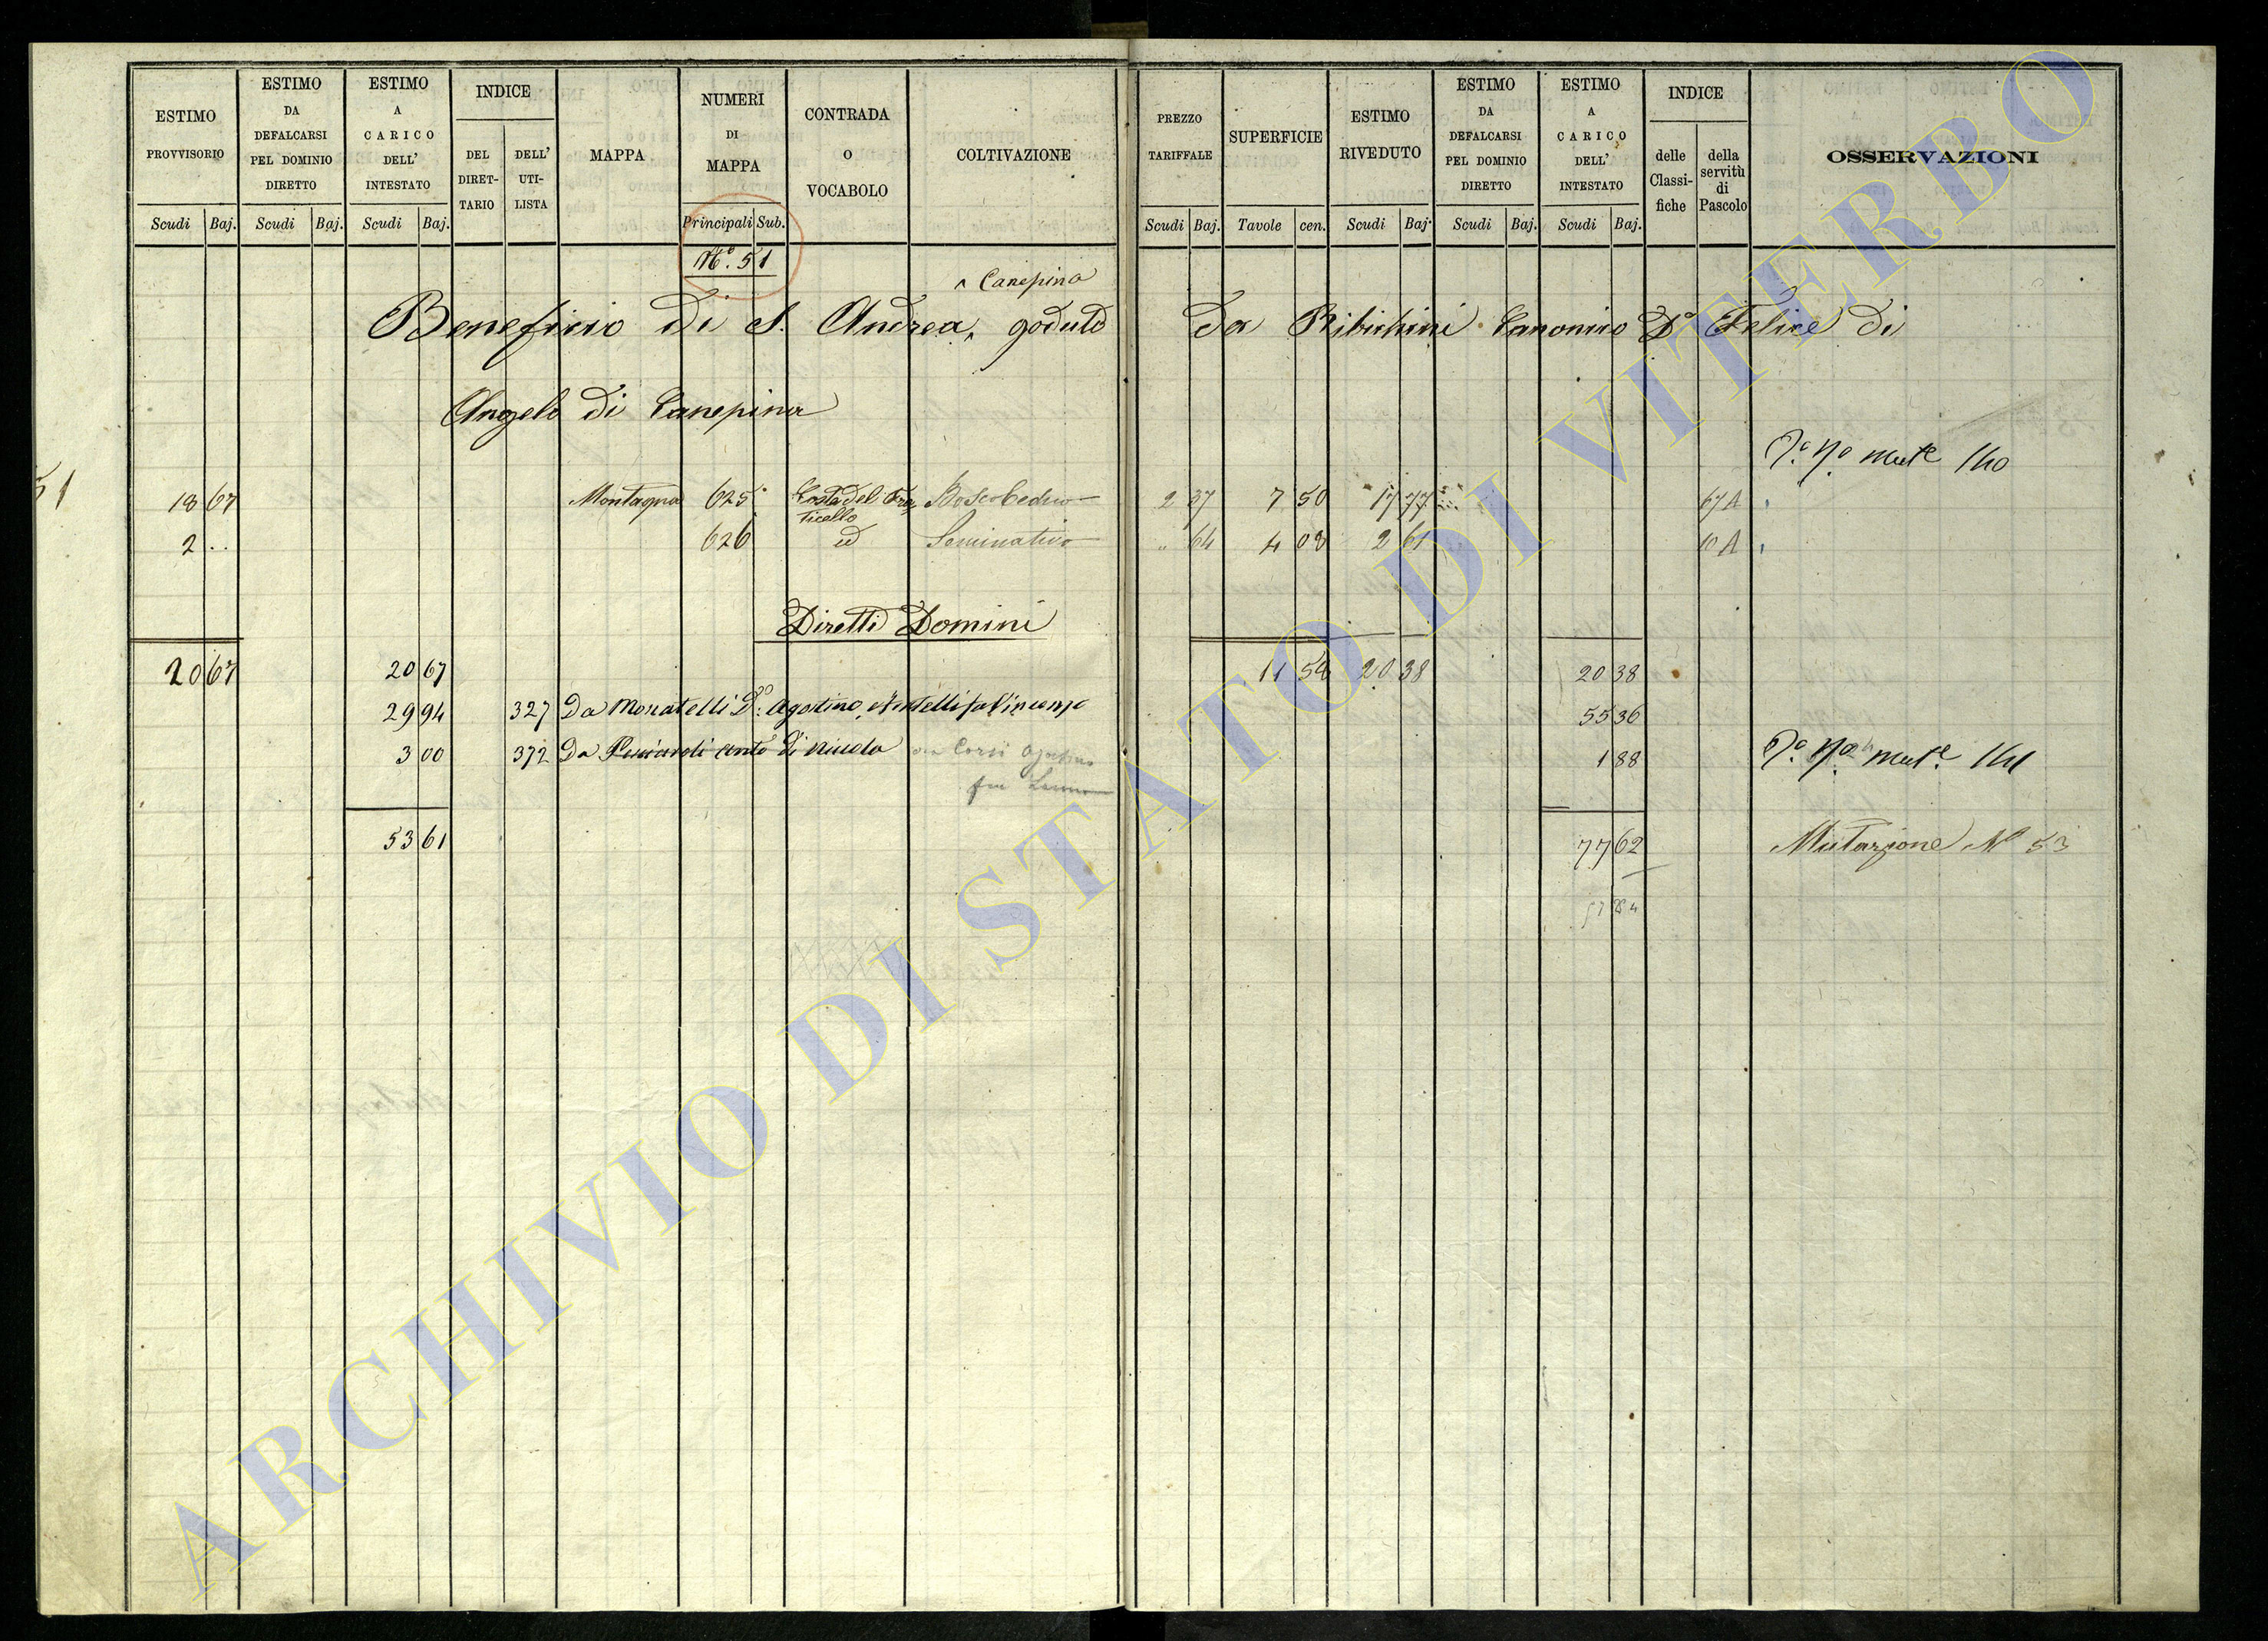 ESTIMO PROVVISORIO
Scudi Baj.
ESTIMO DA DEFALCARSI PEL DOMINIO DIRETTO
Scudi Baj.
ESTIMO A CARICO DELL' INTESTATO
Scudi Baj.
INDICE
DEL DIRET-TARIO
DELL' UTI-LISTA
MAPPA
NUMERI DI MAPPA
Principali Sub.
CONTRADA O VOCABOLO
COLTIVAZIONE
PREZZO TARIFFALE
Scudi Baj.
SUPERFICIE
Tavole cen.
ESTIMO RIVEDUTO
Scudi Baj.
ESTIMO DA DEFALCARSI PEL DOMINIO DIRETTO
Scudi Baj.
ESTIMO A CARICO DELL' INTESTATO
Scudi Baj.
INDICE
delle Classi-fiche
della servitù di Pascolo
OSSERVAZIONI
N.° 51
Canepina
Beneficio di S. Andrea, goduto da Ribichini Canonico D. Felice di
Angelo di Canepina
51
18 67 Montagna 625 Costa del Fra Boscoceduo 2 37 7 50 17 77 67 A
ticello
2 .. 626 id Seminativo .. 64 4 08 2 61 10 A
mut.e 140
Diretti Domini
20 67 20 67 11 58 20 38 20 38
29 94 327 Da Monatelli D. Agostino, e fratelli fu Vincenzo 55 36
3 00 372 Da 1 88 mut.e 141
Corsi Agostino
fu
53 61 77 62 Mutazione N° 53
57 84
ARCHIVIO DI STATO DI VITERBO